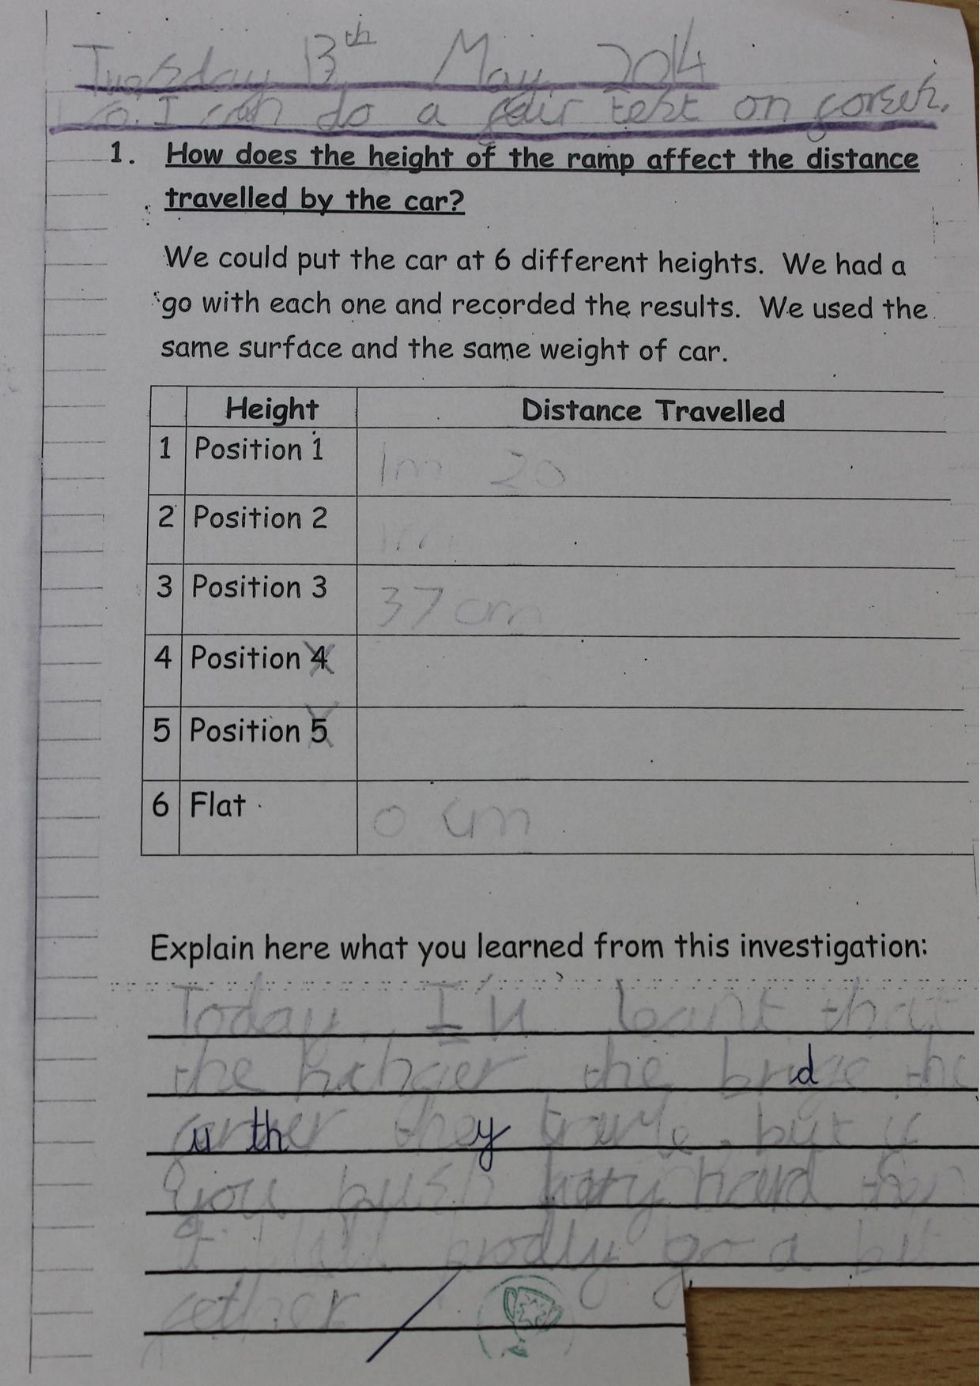 Tuesday 13th May 2014
I can do a fair test on forseh.
1. How does the height of the ramp affect the distance
travelled by the car?
We could put the car at 6 different heights. We had a
go with each one and recorded the results. We used the
same surface and the same weight of car.
Height Distance Travelled
1 Position 1 1m 20
2 Position 2 1m
3 Position 3 37cm
4 Position 4
5 Position 5
6 Flat 0 cm
Explain here what you learned from this investigation:
Today I'v leant that
the the bridge the
they travle. but if
you push hard
a bit